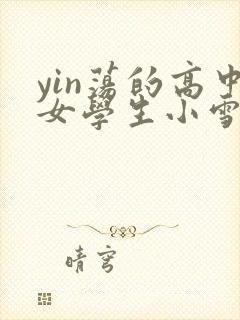 yin蕩的高中
女學生小雪
晴穹